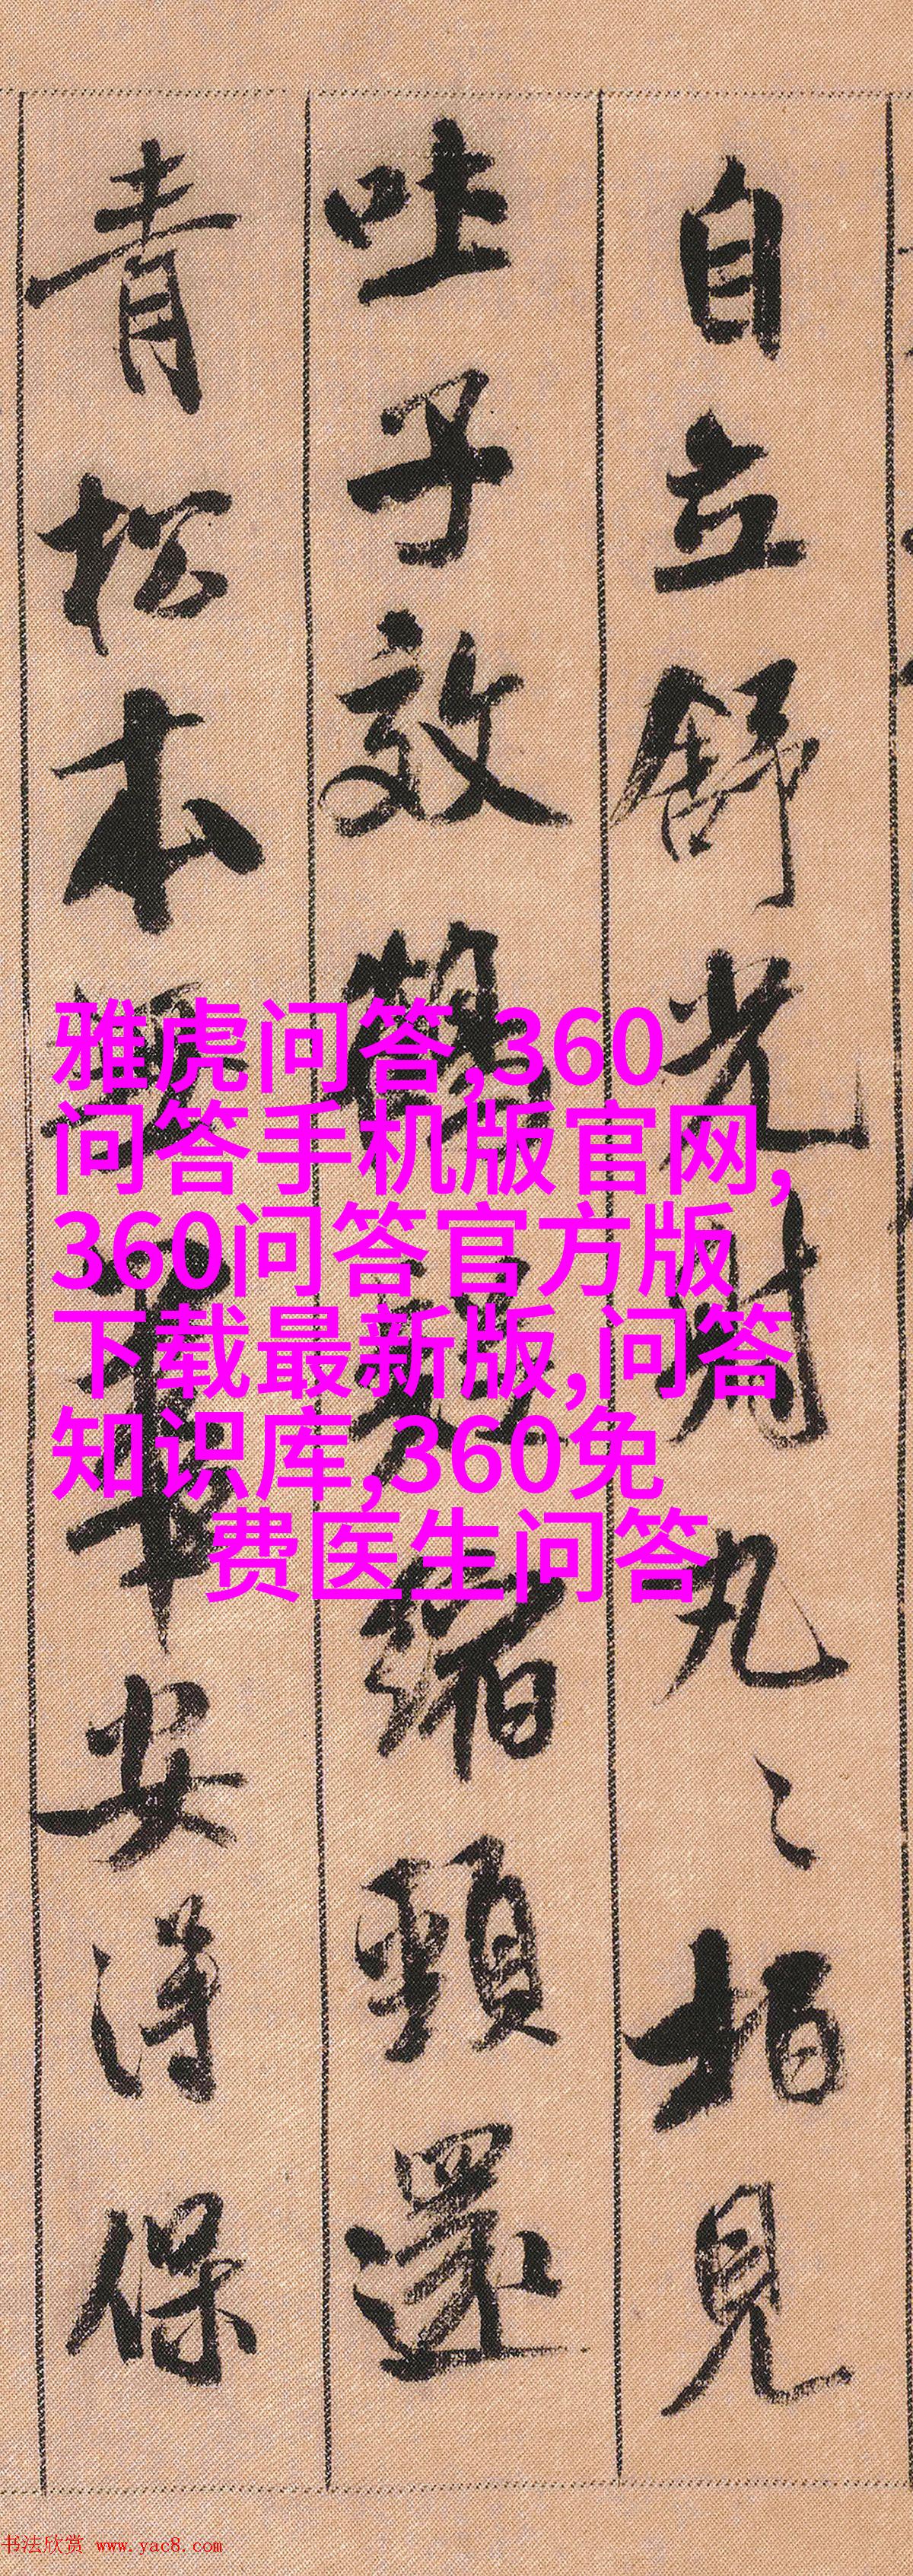 自立舒光射丸〻柏見
吐子效鶴疑縮頸還
青松本無華安得保
雅虎问答,360
问答手机版官网,
360问答官方版
下载最新版,问答
知识库,360免
费医生问答
书法欣赏 www.yac8.com